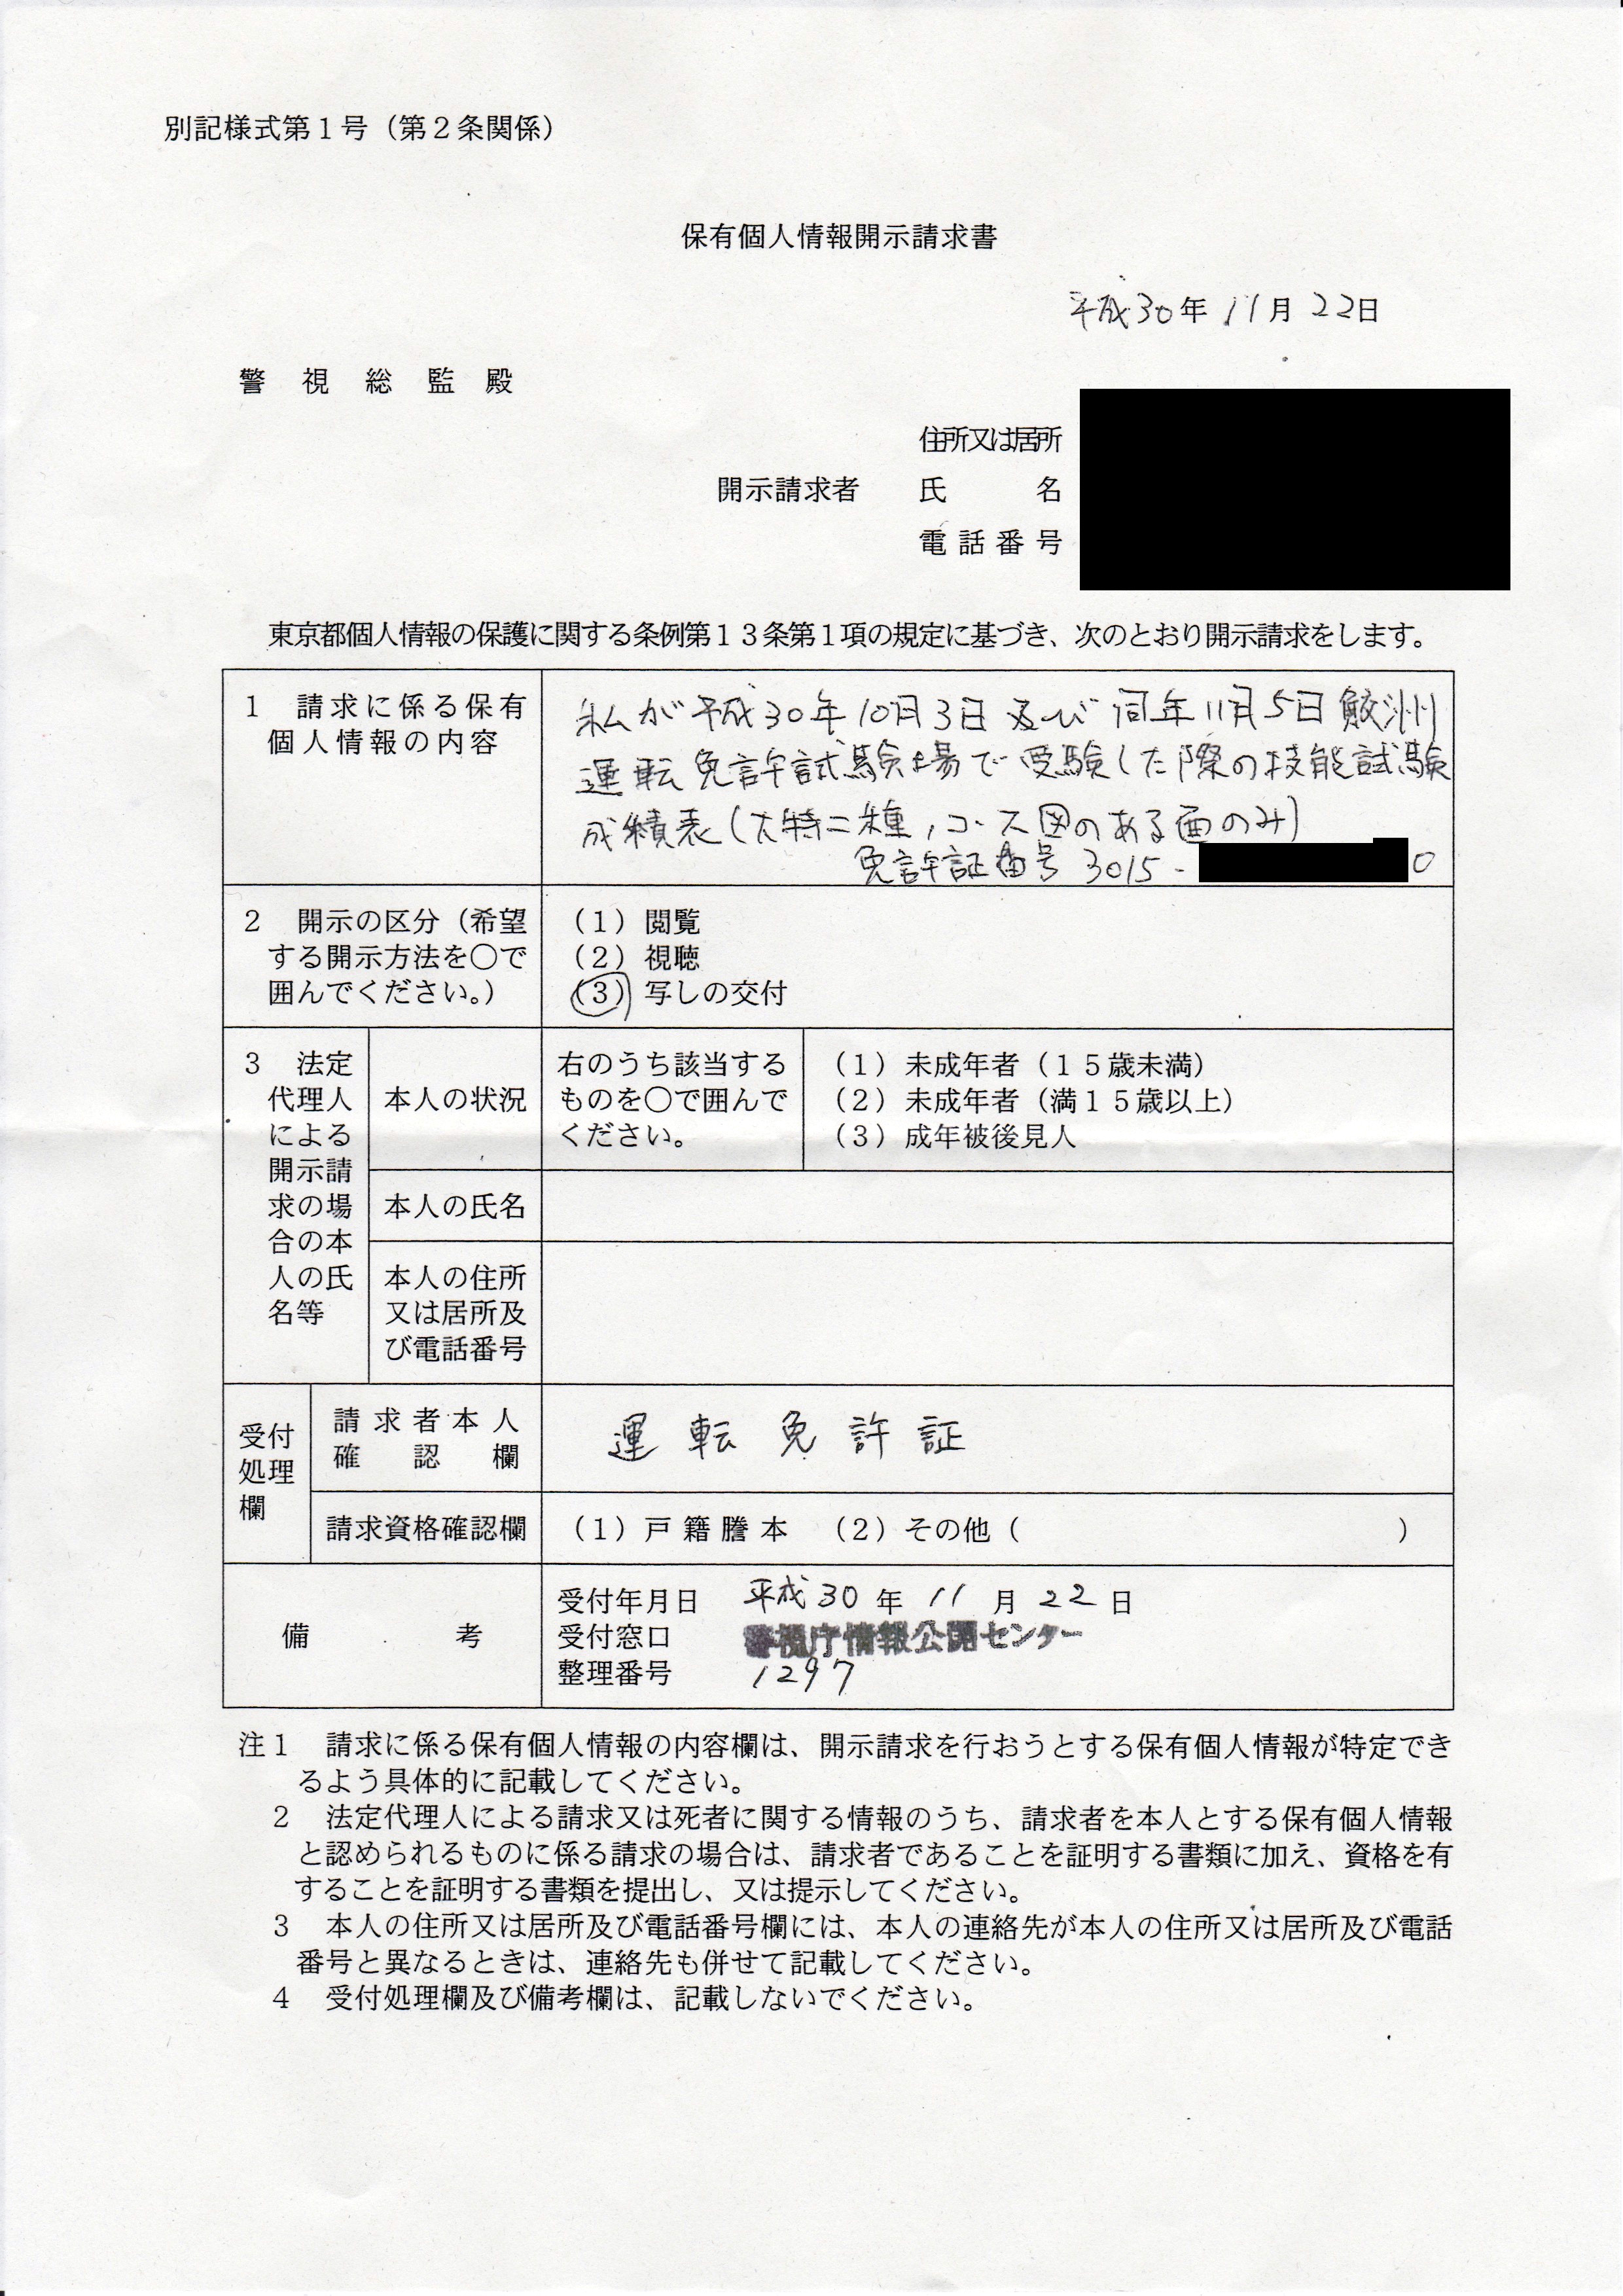 別記様式第１号（第２条関係）
保有個人情報開示請求書
平成30年 11月 22日
警視総監殿
住所又は居所
開示請求者 氏名
電話番号
東京都個人情報の保護に関する条例第１３条第１項の規定に基づき、次のとおり開示請求をします。
１ 請求に係る保有
個人情報の内容
私が平成30年10月3日及び同年11月5日鮫洲
運転免許試験場で受験した際の技能試験
成績表(大特二種,コース図のある面のみ)
免許証番号 3015- 0
２ 開示の区分（希望
する開示方法を○で
囲んでください。）
（１）閲覧
（２）視聴
（３）写しの交付
３ 法定
代理人
による
開示請
求の場
合の本
人の氏
名等
本人の状況
右のうち該当する
ものを○で囲んで
ください。
（１）未成年者（１５歳未満）
（２）未成年者（満１５歳以上）
（３）成年被後見人
本人の氏名
本人の住所
又は居所及
び電話番号
受付
処理
欄
請求者本人
確認欄
運転免許証
請求資格確認欄
（１）戸籍謄本 （２）その他（ ）
備考
受付年月日 平成30年 11月 22日
受付窓口 警視庁情報公開センター
整理番号 1297
注１ 請求に係る保有個人情報の内容欄は、開示請求を行おうとする保有個人情報が特定でき
るよう具体的に記載してください。
２ 法定代理人による請求又は死者に関する情報のうち、請求者を本人とする保有個人情報
と認められるものに係る請求の場合は、請求者であることを証明する書類に加え、資格を有
することを証明する書類を提出し、又は提示してください。
３ 本人の住所又は居所及び電話番号欄には、本人の連絡先が本人の住所又は居所及び電話
番号と異なるときは、連絡先も併せて記載してください。
４ 受付処理欄及び備考欄は、記載しないでください。